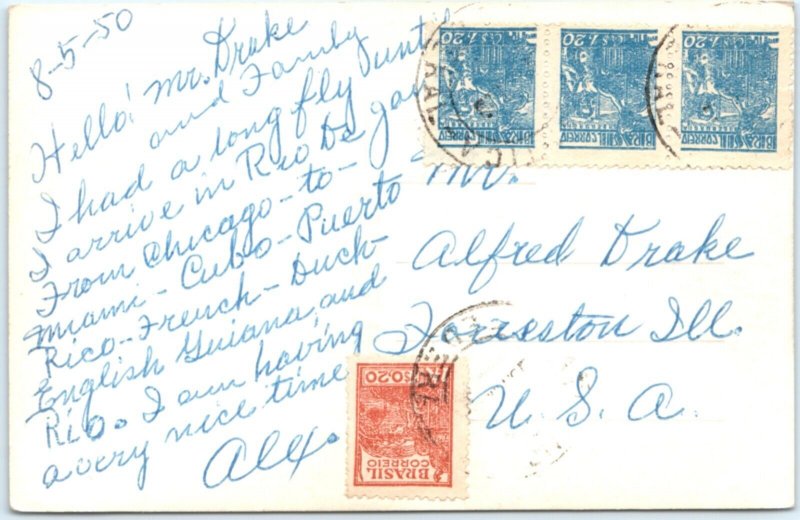 8-5-50
Hello! Mr. Drake
and Family
I had a long fly until
I arrive in Rio De Jan
From Chicago-to-
Miami-Cuba-Puerto
Rico-French-Duch-
English Guiana, and
Rio. I am having
a very nice time
Alex.
Mr.
Alfred Drake
Forreston Ill.
U. S. A.
CR$ 1,20
BRASIL CORREIO
CR$ 1,20
BRASIL CORREIO
CR$ 1,20
BRASIL CORREIO
0,20
BRASIL
CORREIO